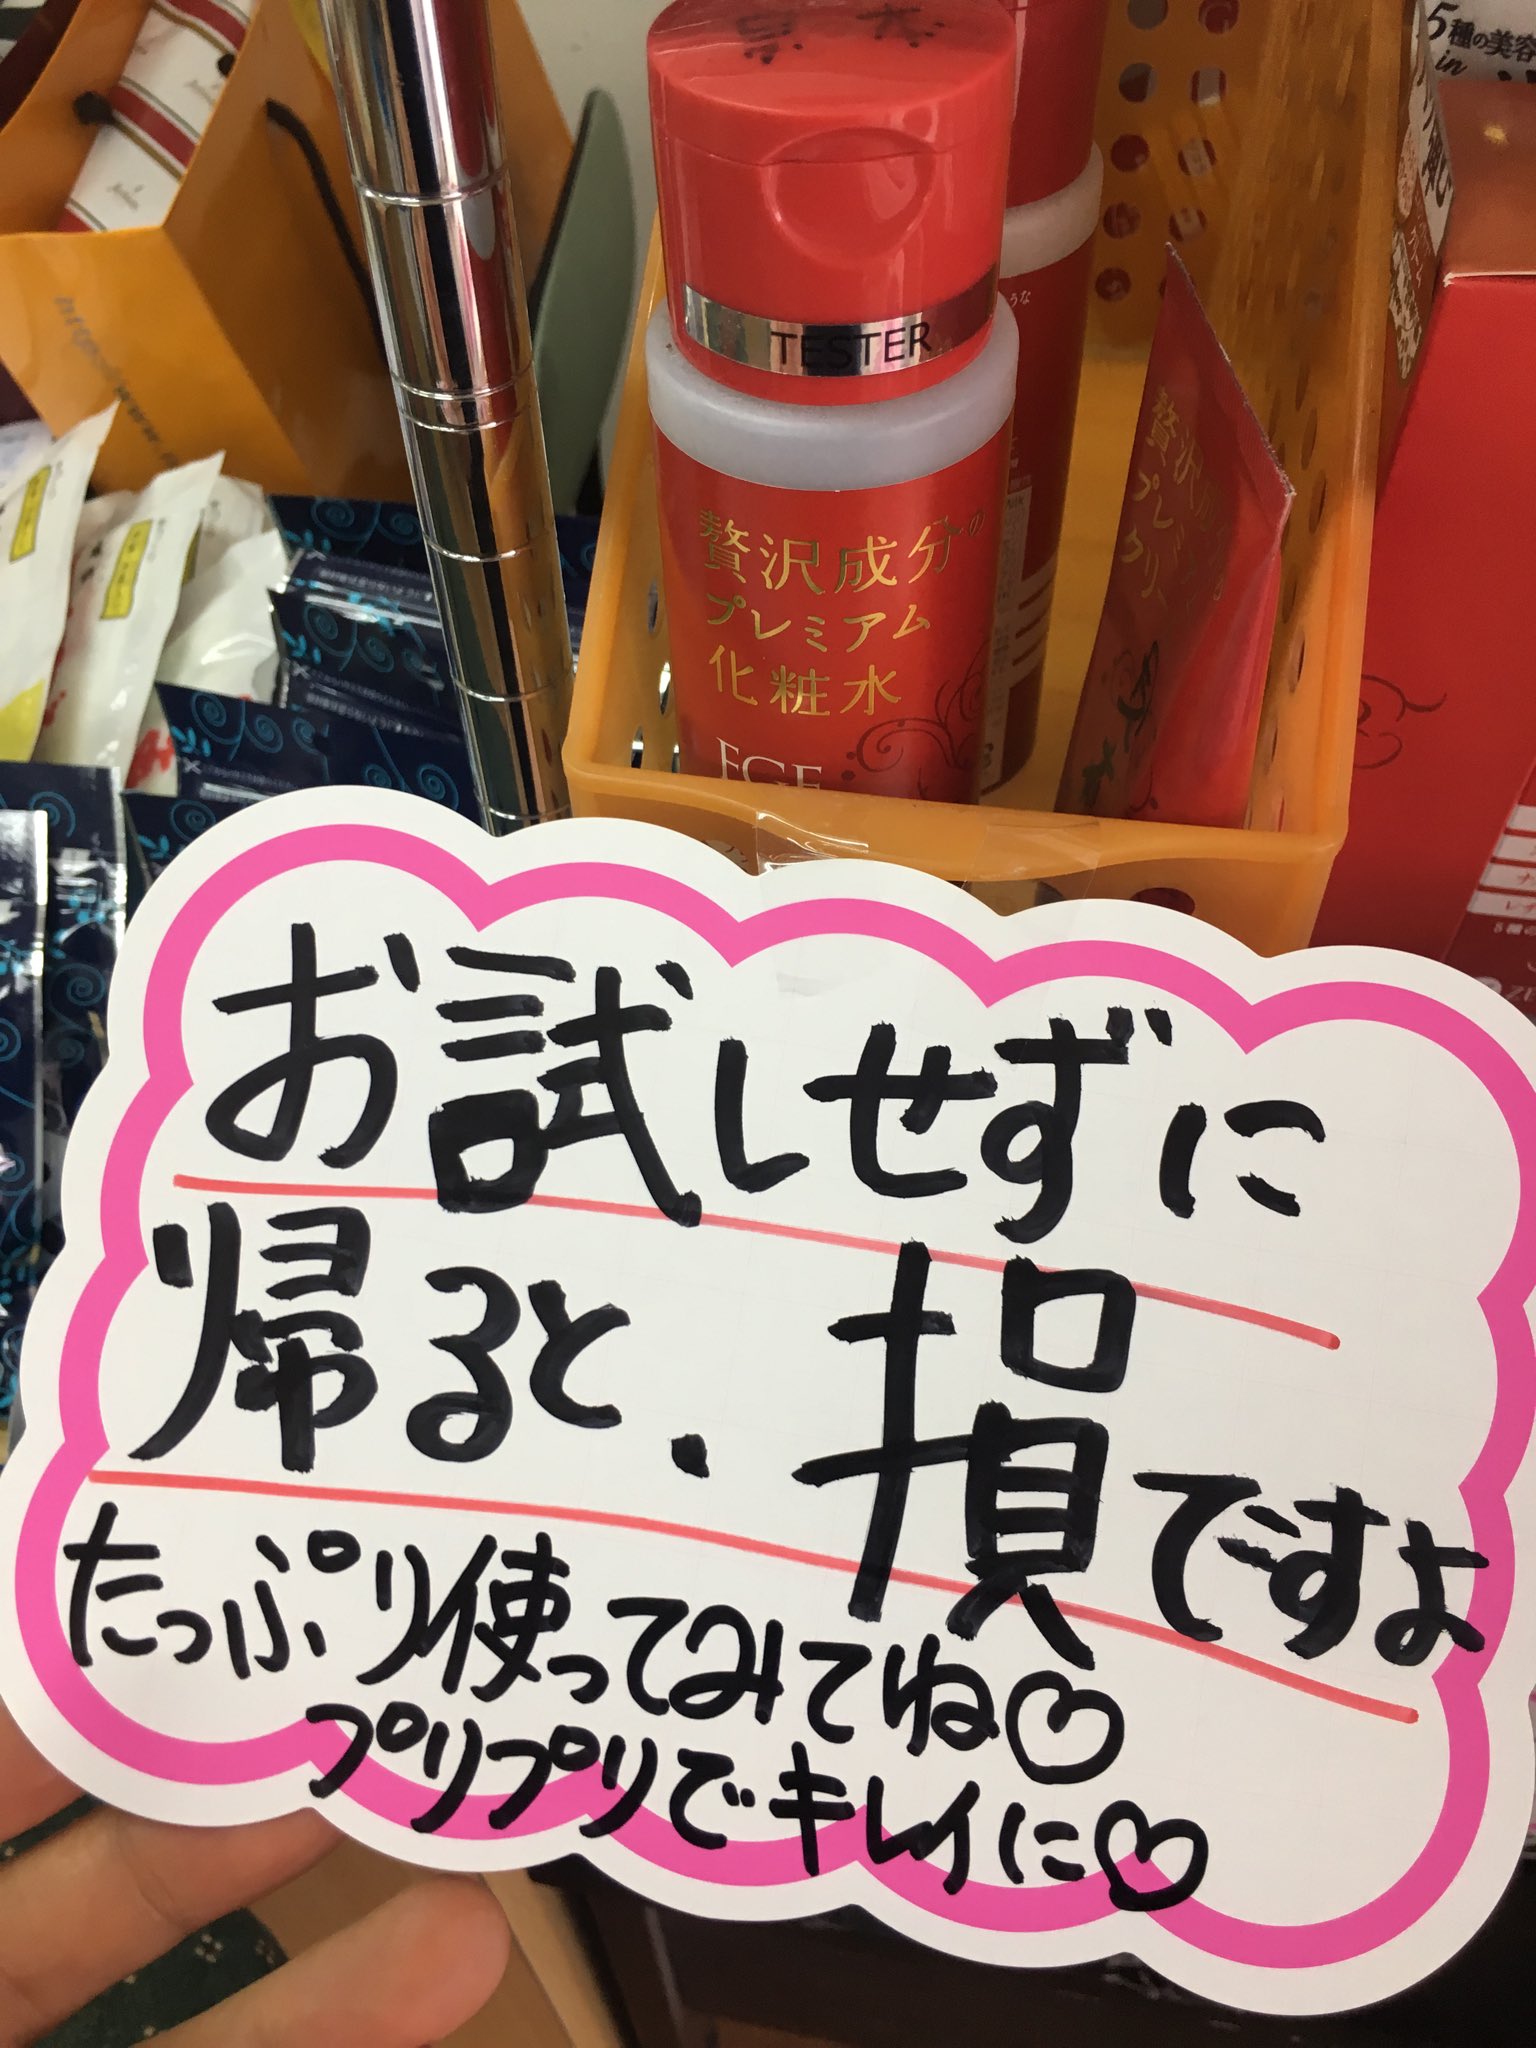 5種の美容
in
TESTER
贅沢成分の
プレミアム
化粧水
EGF
贅沢
プレミ
クリ
お試しせずに
帰ると、損ですよ
たっぷり使ってみてね♡
プリプリでキレイに♡